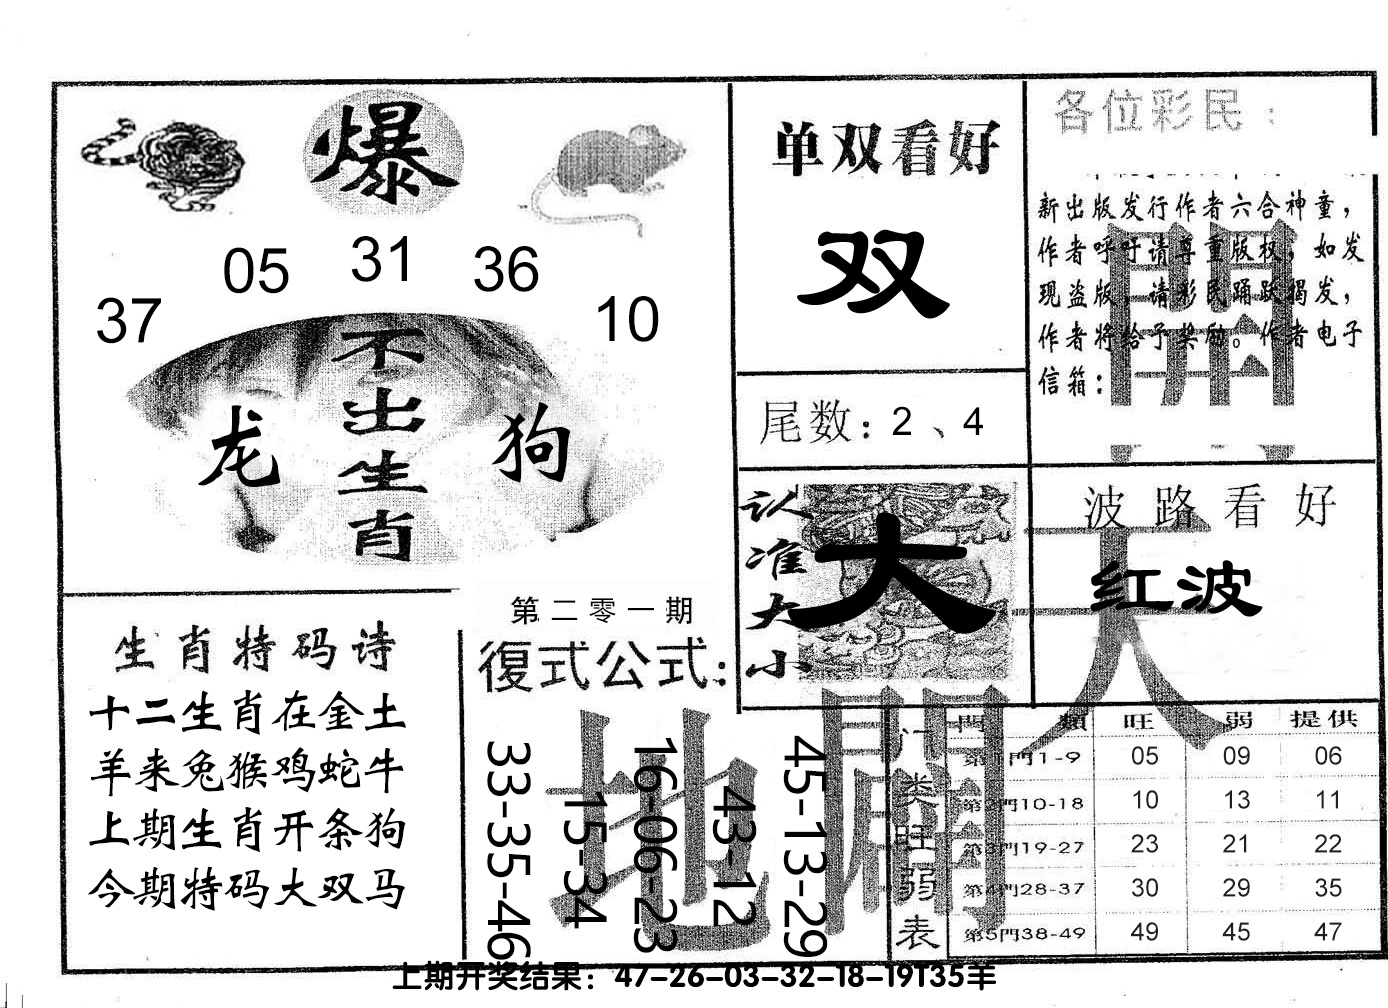 爆
37 05 31 36 10
不出生肖
龙 狗
单双看好
双
尾数：2、4
各位彩民：
新出版发行作者六合神童，
作者呼吁请尊重版权，如发
现盗版，请彩民踊跃揭发，
作者将给予奖励。作者电子
信箱：
開
认准大小
大
波路看好
红波
天
生肖特码诗
十二生肖在金土
羊来兔猴鸡蛇牛
上期生肖开条狗
今期特码大双马
第二零一期
復式公式：
33-35-46
15-34
16-06-23
43-12
45-13-29
地
门类旺弱表
門類 旺 弱 提供
第1門1-9 05 09 06
第2門10-18 10 13 11
第3門19-27 23 21 22
第4門28-37 30 29 35
第5門38-49 49 45 47
上期开奖结果：47-26-03-32-18-19T35羊